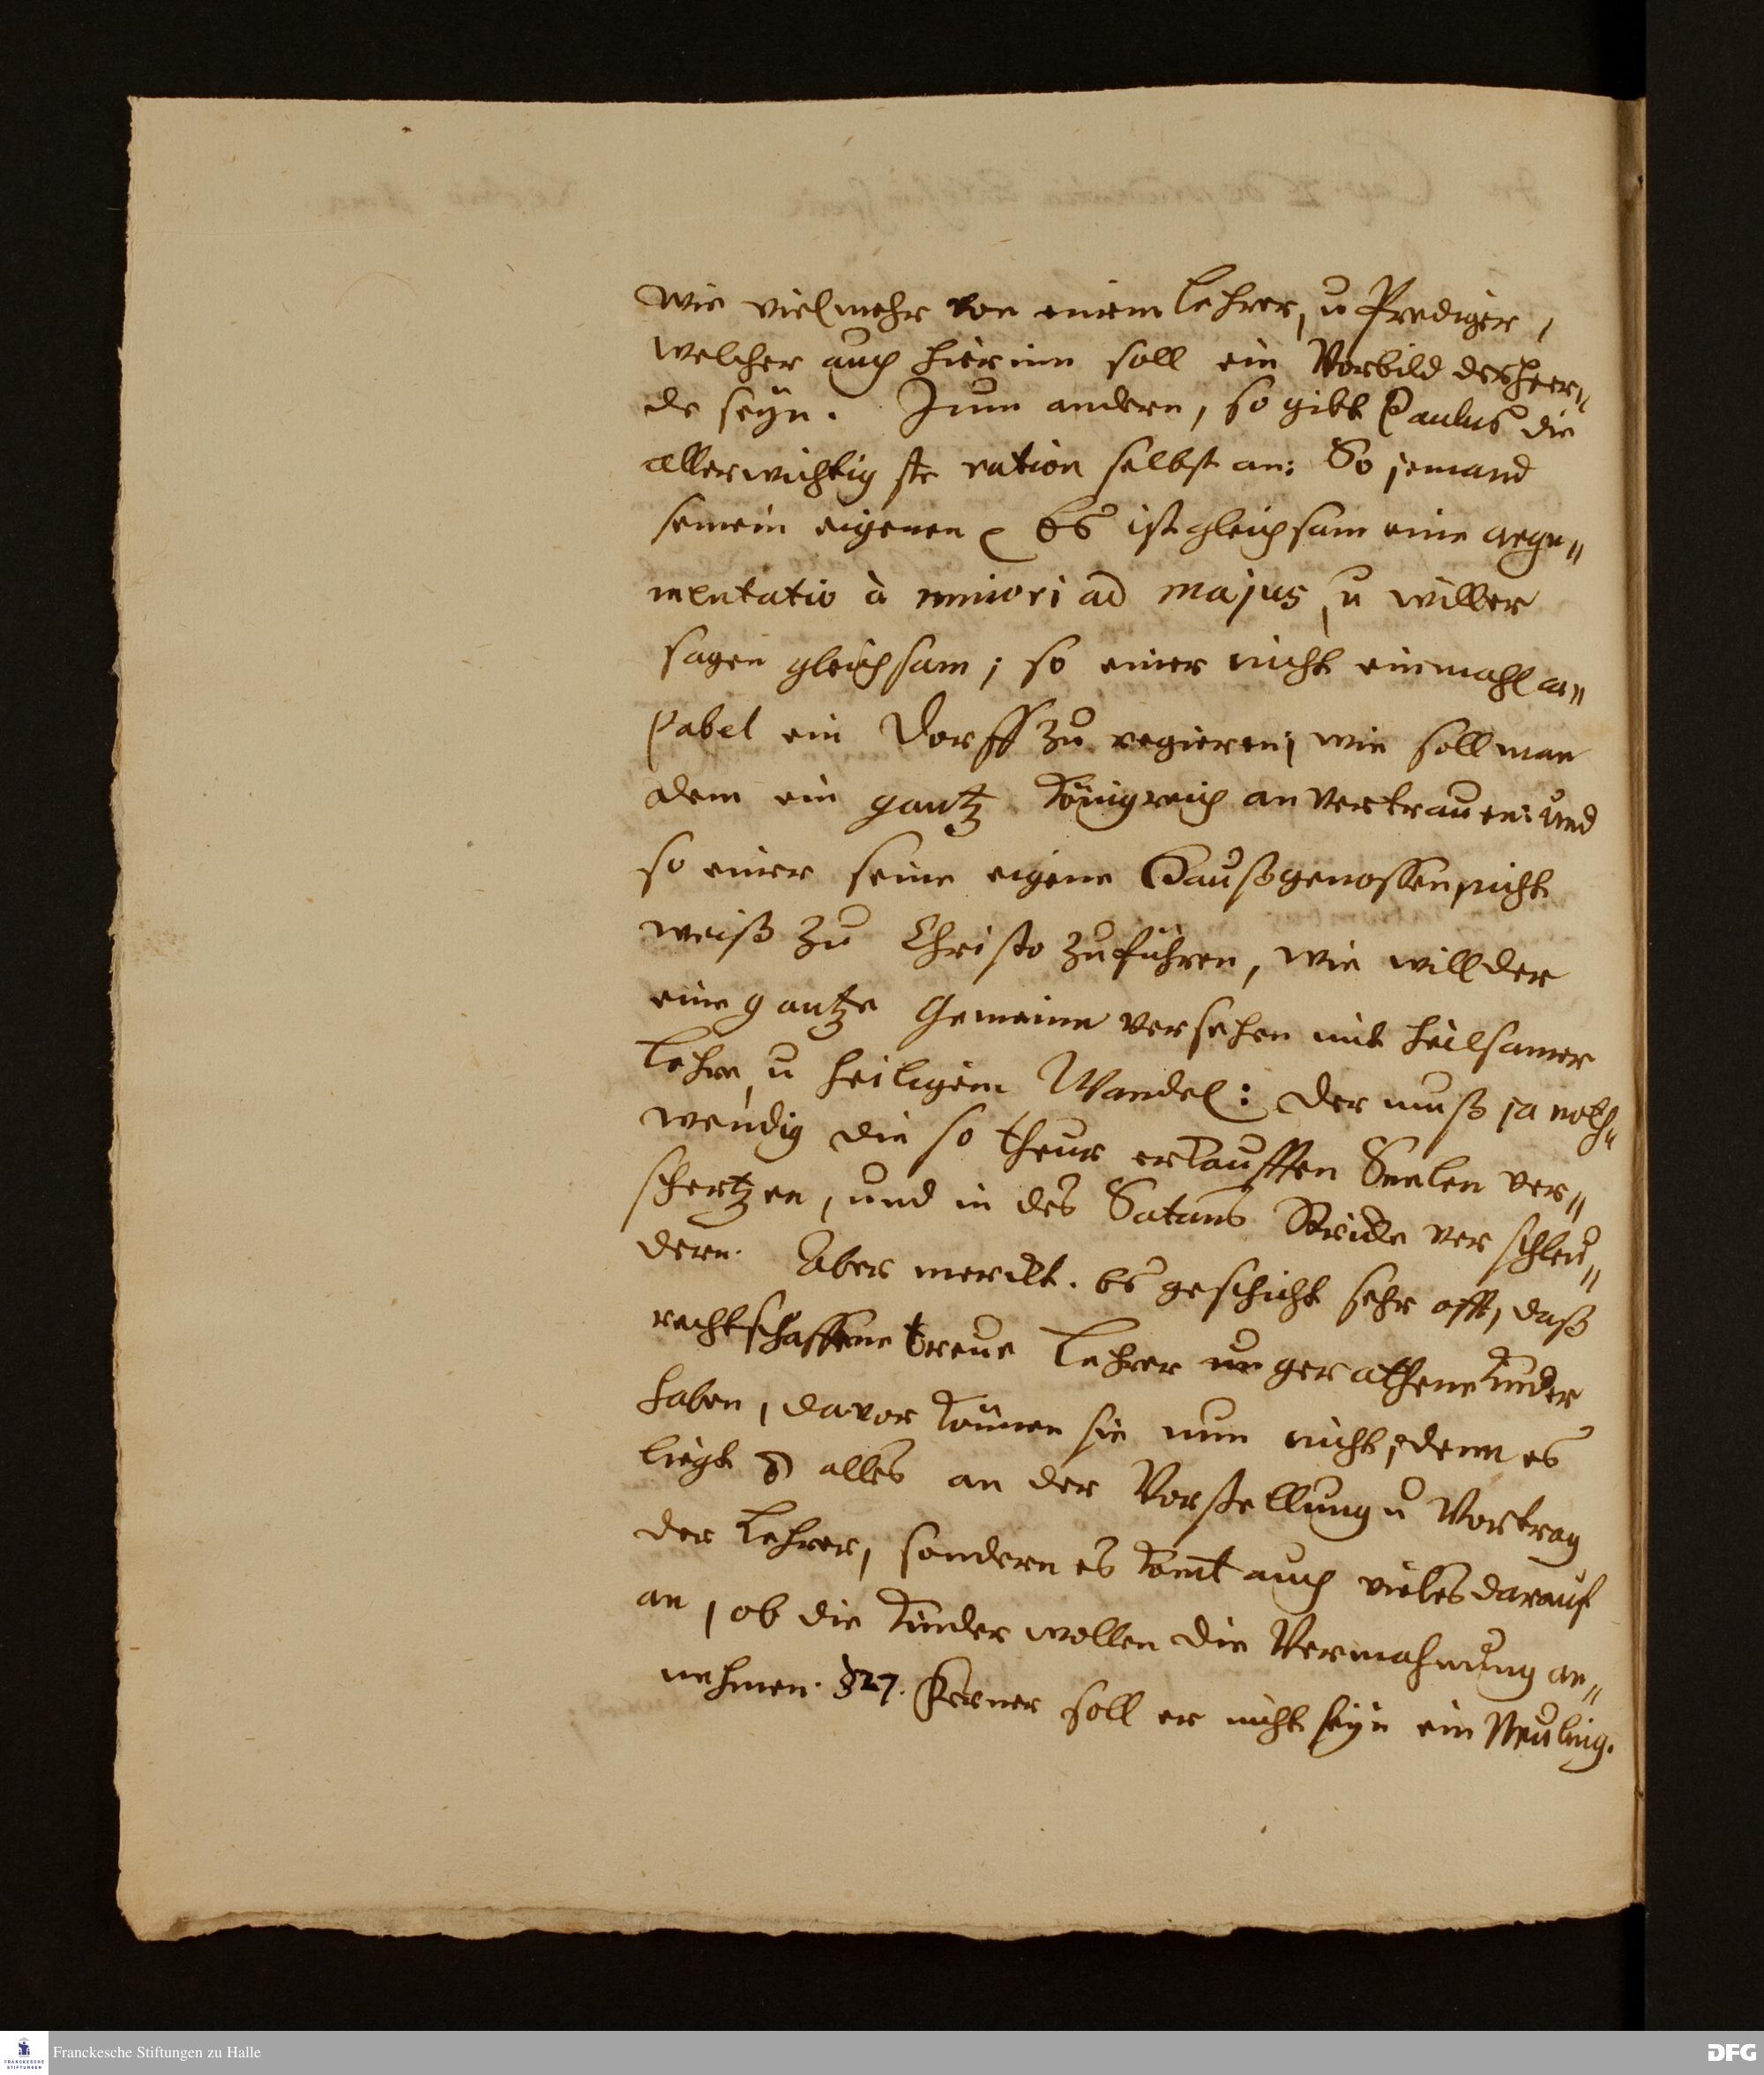 wie viel mehr von einem Lehrer, u Prediger,
welcher auch hierinn soll ein Vorbild der Heer„
de seyn. Zum andern, so gibt Paulus die
allerwichtigste ration selbst an: So jemand
seinem eigenen Es ist gleichsam eine argu„
mentatio à minori ad majus, u will er
sagen gleichsam; so einer nicht einmahl ca„
pabel ein Dorff zu regieren, wie soll man
dem ein gantz Königreich anvertrauen: und
so einer seine eigene Haußgenossen nicht
weiß zu Christo zuführen, wie will der
eine gantze Gemeine versehen mit heilsamer
Lehre, u heiligem Wandel: der muß ja noth„
wendig die so theur erkaufften Seelen ver„
schertzen, und in des Satans Stricke verschleu„
dern. Aber merckt. Es geschicht sehr offt, daß
rechtschaffene treue Lehrer ungerathene Kinder
haben, davor können sie nun nicht, denn es
liegt alles an der Vorstellung u Vortrag
der Lehrer, sondern es komt auch vieles darauf
an, ob die Kinder wollen die Vermahnung an„
nehmen. §27. Ferner soll er nicht seyn ein Neuling.
Franckesche Stiftungen zu Halle
FRANCKESCHE
STIFTUNGEN
DFG